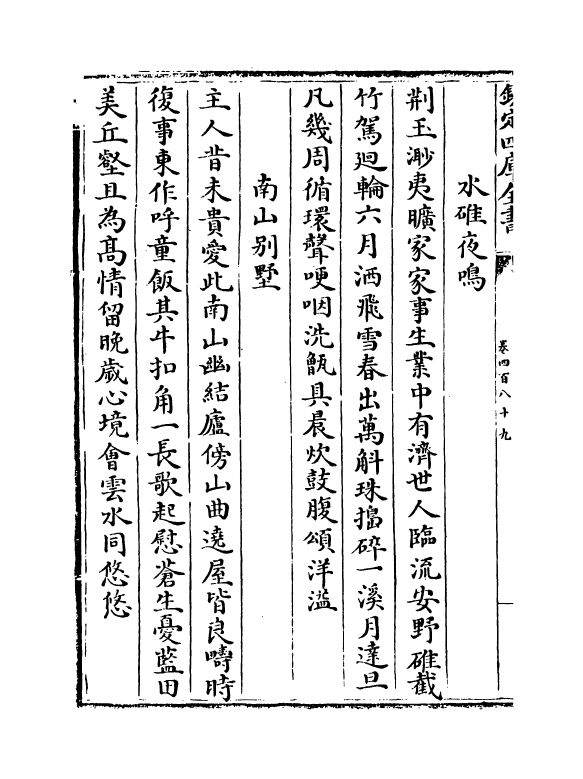 欽定四庫全書
卷四百八十九
水碓夜鳴
荆玉渺夷曠家家事生業中有濟世人臨流安野碓截
竹駕廻輪六月洒飛雪舂出萬斛珠搗碎一溪月達旦
凡幾周循環聲哽咽洗甑具晨炊鼓腹頌洋溢
南山別墅
主人昔未貴愛此南山幽結廬傍山曲遶屋皆良疇時
復事東作呼童飯其牛扣角一長歌起慰蒼生憂藍田
美丘壑且為髙情留晚歲心境會雲水同悠悠